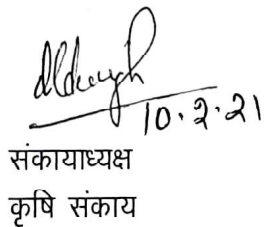 10.2.21
संकायाध्यक्ष
कृषि संकाय